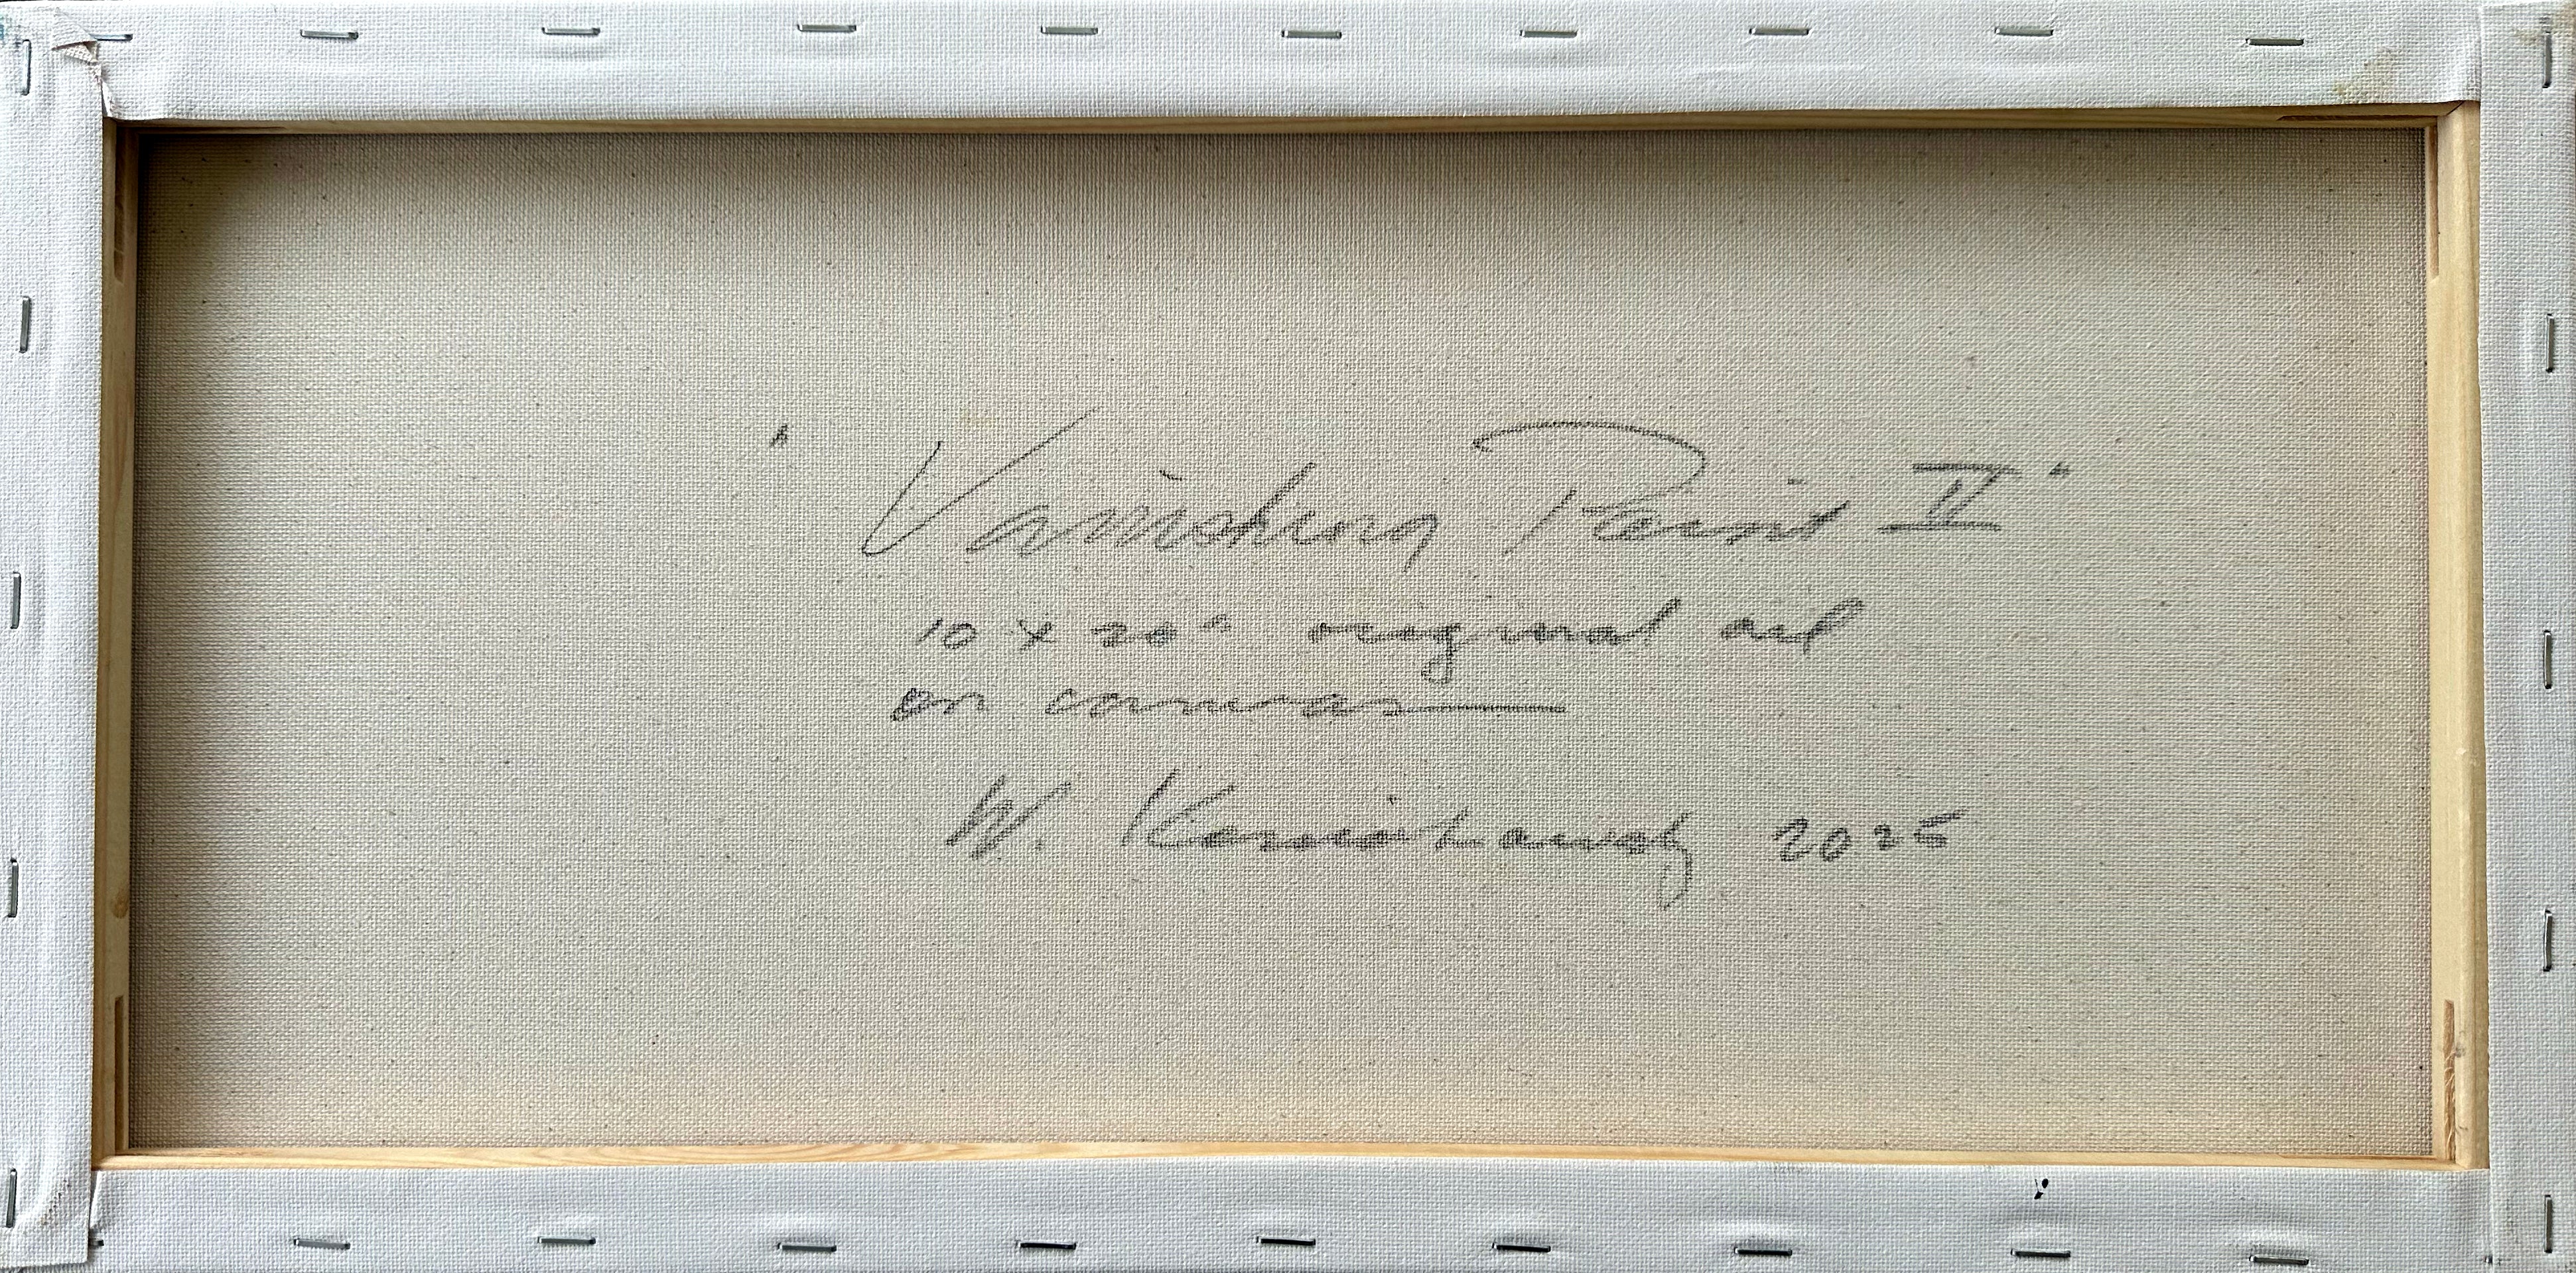 "Vanishing Point II"
10 x 20" original oil
on canvas
W. 2025